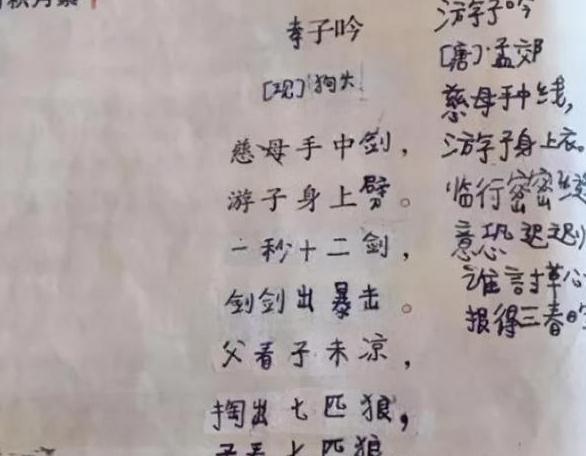 孝子吟
[现]狗大
慈母手中剑，
游子身上劈。
一秒十二剑，
剑剑出暴击。
父看子未凉，
掏出七匹狼，
子看七匹狼
游子吟
[唐]孟郊
慈母手中线，
游子身上衣。
临行密密缝
意恐迟迟归
谁言寸草心
报得三春